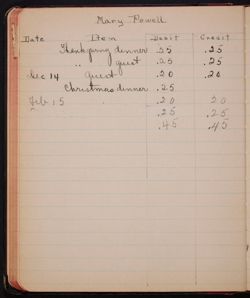 Mary Powell
Date Item Debit Credit
Thankgiving dinner .25 .25
" guest .25 .25
Dec 14 Guest .20 .20
Christmas dinner .25
Feb 15 . .20 20
.25 .25
.45 .45